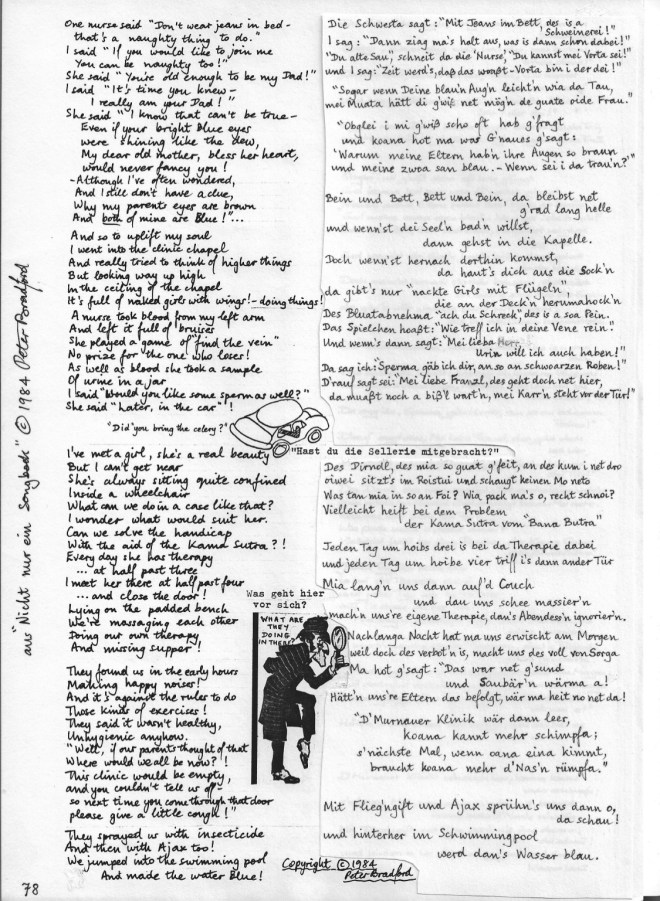 One nurse said "Don't wear jeans in bed -
that's a naughty thing to do."
I said "If you would like to join me
You can be naughty too!"
She said "You're old enough to be my Dad!"
I said "It's time you knew -
I really am your Dad!"
She said "I know that can't be true -
Even if your bright Blue eyes
were shining like the dew,
My dear old mother, bless her heart,
would never fancy you!
- Although I've often wondered,
And I still don't have a clue,
Why my parents eyes are brown
And both of mine are Blue!"...
And so to uplift my soul
I went into the clinic chapel
And really tried to think of higher things
But looking way up high
In the ceiling of the chapel
It's full of naked girls with wings! - doing things!
A nurse took blood from my left arm
And left it full of bruises
She played a game of "find the vein"
No prize for the one who loses!
As well as blood she took a sample
Of urine in a jar
I said "Would you like some sperm as well?"
She said "Later, in the car"!
"Did you bring the celery?"
I've met a girl, she's a real beauty
But I can't get near
She's always sitting quite confined
Inside a wheelchair
What can we do in a case like that?
I wonder what would suit her.
Can we solve the handicap
With the aid of the Kama Sutra?!
Every day she has therapy
... at half past three
I meet her there at half past four
... and close the door!
Lying on the padded bench
We're massaging each other
Doing our own therapy
And missing supper!
They found us in the early hours
Making happy noises!
And it's against the rules to do
Those kinds of exercises!
They said it wasn't healthy,
Unhygienic anyhow.
"Well, if our parents thought of that
Where would we all be now?!
This clinic would be empty,
and you couldn't tell us off -
so next time you come through that door
please give a little cough!"
They sprayed us with insecticide
And then with Ajax too!
We jumped into the swimming pool
And made the water Blue!
78
aus "Nicht nur ein Songbook" © 1984 Peter Bradford
Die Schwesta sagt: "Mit Jeans im Bett, des is a
Schweinerei!"
I sag: "Dann ziag ma's halt aus, was is dann schon dabei!"
"Du alte Sau", schneit da die 'Nurse', "Du kannst mei Vorta sei!"
und I sag: "Zeit werd's, daß das woaßt - Vorta bin i der dei!"
"Sogar wenn Deine blau'n Aug'n leicht'n wia da Tau,
mei Muata hätt di g'wiß net mög'n de guate oide Frau."
"Obglei i mi g'wiß scho oft hab g'fragt
und koana hot ma was G'naues g'sagt:
'Warum meine Eltern hab'n ihre Augen so braun
und meine zwoa san blau. - Wenn sei i da trau'n?'"
Bein und Bett, Bett und Bein, da bleibst net
g'rad lang helle
und wenn'st dei Seel'n bad'n willst,
dann gehst in die Kapelle.
Doch wenn'st hernach dorthin kommst,
da haut's dich aus die Sock'n
da gibt's nur "nackte Girls mit Flügeln",
die an der Deck'n herumahock'n
Des Bluatabnehma "ach du Schreck", des is a soa Pein.
Das Spielchen hoaßt: "Wie treff ich in deine Vene rein".
Und wenn's dann sagt: "Mei lieba Herr,
Urin will ich auch haben!"
Da sag ich: "Sperma gäb ich dir, an so an schwoarzen Roben!"
D'rauf sagt sei: "Mei liebe Franzl, des geht doch net hier,
da muaßt noch a biß'l wart'n, mei Karr'n steht vor der Tür!"
"Hast du die Sellerie mitgebracht?"
Des Dirndl, des mia so guat g'feit, an des kum i net dro
oiwei sitzt's im Roistui und schaugt keinen Mo neto
Was tam mia in so an Foi? Wia pack ma's o, recht schnoi?
Vielleicht heift bei dem Problem
der Kama Sutra vom "Bana Butra"
Jeden Tag um hoibs drei is bei da Therapie dabei
und jeden Tag um hoibe vier triff i's dann ander Tür
Mia lang'n uns dann auf'd Couch
und dau uns schee massier'n
mach'n uns're eigene Therapie, dan's Abendess'n ignorier'n.
Nachlanga Nacht hot ma uns erwischt am Morgen
weil doch des verbot'n is, macht uns des voll von Sorga
Ma hot g'sagt: "Das war net g'sund
und Saubär'n wärma a!
Hätt'n uns're Eltern das befolgt, wär ma heit no net da!
"D'Murnauer Klinik wär dann leer,
koana kannt mehr schimpfa;
s'nächste Mal, wenn oana eina kimmt,
braucht koana mehr d'Nas'n rümpfa."
Mit Flieg'ngift und Ajax sprühn's uns dann o,
da schau!
und hinterher im Schwimmingpool
werd dan's Wasser blau.
Was geht hier
vor sich?
WHAT ARE
THEY
DOING
IN THERE?
Copyright © 1984
Peter Bradford